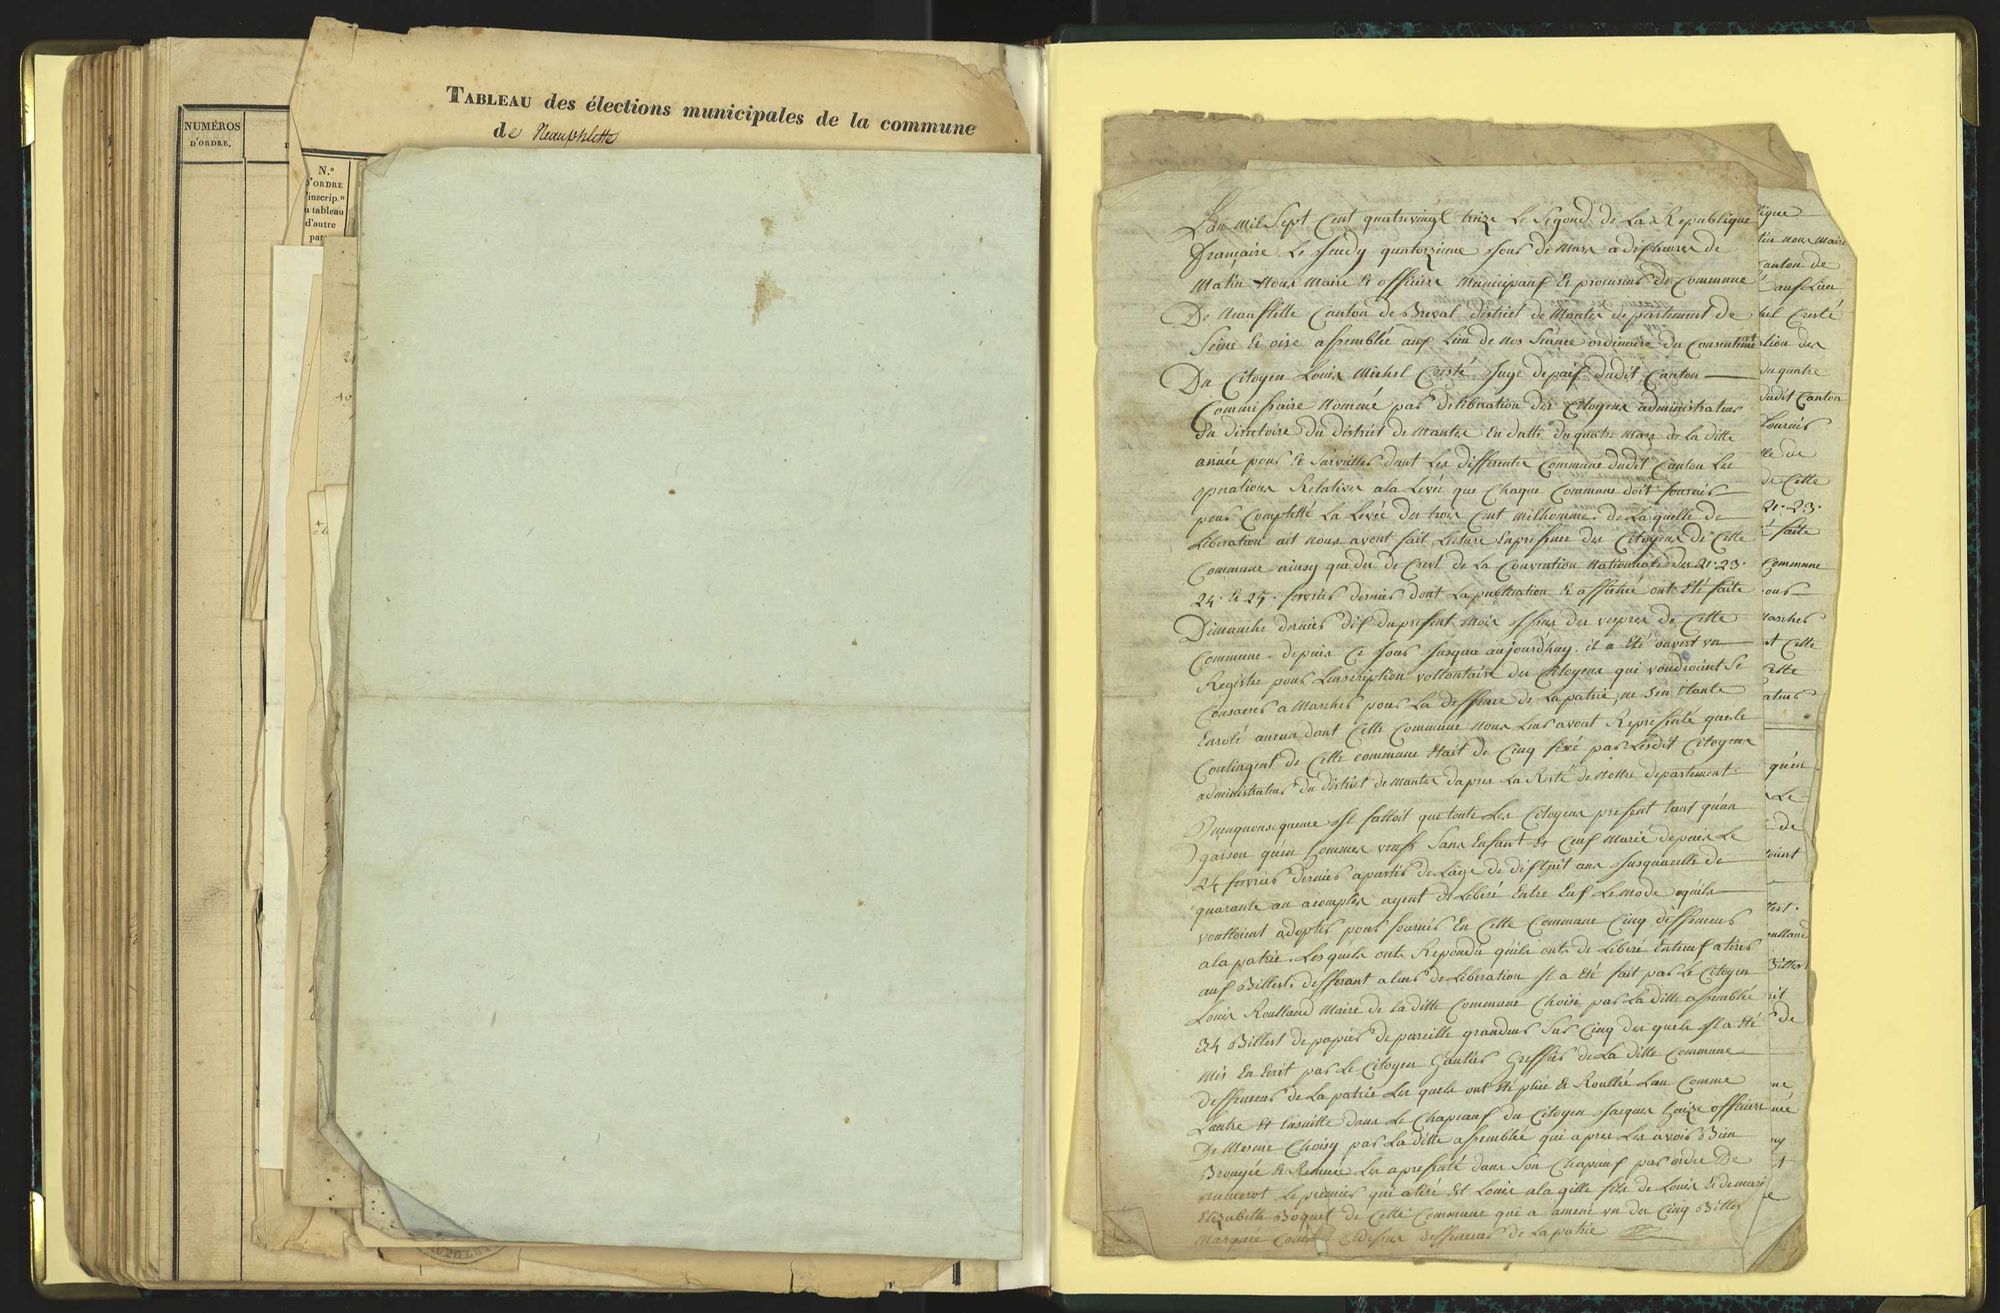 NUMÉROS
D'ORDRE.
TABLEAU des élections municipales de la commune
de Neauphlette
N.º
D'ORDRE
d'inscrip.n
au tableau
d'autre
part
L'an mil Sept Cent quatrevingt treize Le Segond de La Republique
française Le Jeudy quatorzieme Jour de Mars a dix heures de
Matin Nous Maire Et officiers Municipauf Et procureur de Commune
De Neauflette Canton de Breval district de Mantes departement de
Seine Et oise assemblée auf Lieu de Nos Séance ordinaire du Consentment
Du Citoyen Louis Michel Cresté Juge depaix dudit Canton
Commissaire Nommé par deliberation des Citoyens administrateurs
Du directoire du district de Mantes En datte du quatre Mars de la ditte
année pour Et Surveiller dant Les differentes Commune dudit Canton Les
operations Relatives ala Levée que Chaque Commune doit fournir
pour Completté La Levée des trois Cent Milhomme. de La quelle de
Liberation ait nous avont fait Lecture En presence des Citoyens de Cette
Commune ainsy que du de Cret de La Convention Nationnale des 21. 23.
24. & 25. fevrier dernier dont La publication & affiché ont Eté faite
Dimanche dernier dix du present Mois Issus des vespres de Cette
Commune. depuis Ce Jour Jusqua aujourdhuy. il a Eté ouvert un
Registre pour Linscription vollontaire des Citoyens qui voudroient Se
Consacrer a Marcher pour La deffence de La patrie, ne Sen Etante
Enrolé aucun dant Cette Commune Nous Leur avont Representé que le
Contingent de Cette commune Etait de Cinq fixé par Lesdit Citoyens
administrateurs du district de Mantes dapres La Resté de Nottre departement
Quenquonsequence Il falloit que toute Les Citoyens present tant qu'en
garson qu'en hommes veuf Sans Enfant Et Ceuf Marié depuis Le
24 fevrier dernier apartir de Lage de dix huit ans Jusquacelle de
quarante an acomplis ayent de Liberé Entre Euf Le Mode aquils
voulloient adopter pour fournir En Cette Commune Cinq deffenceurs
ala patrie. Lesquels onts Repondu quils onts de Liberé Entreuf atirer
auf Billest. defferant aleur deLiberation Il a Eté fait par Le Citoyen
Louis Roulland Maire de La ditte Commune Choisi par La ditte assemblée
34 Billest depapier de pareille grandeur Sur Cinq des quels Il a Eté
Mis En Ecrit par Le Citoyen Gautier Greffier de La ditte Commune
deffenceurs de La patrie Les quels ont Eté pliée & Roullié Lun Comme
Lautre Et Ensuitte dans Le Chapeauf du Citoyen Jacques Haize officiers
De Mesme Choisy par La ditte assemblée qui apres Les avoir Bien
Brouyée & Remuée Les apresenté dans Son Chapeauf par ordre De
numerot Le premier qui atiré Est Louis ala gille fils de Louis & de mari
Elizabeth Boquet de Cette Commune qui a amené un des Cinq Billes
Marquée Comme Cidessus deffenceurs de La patrie